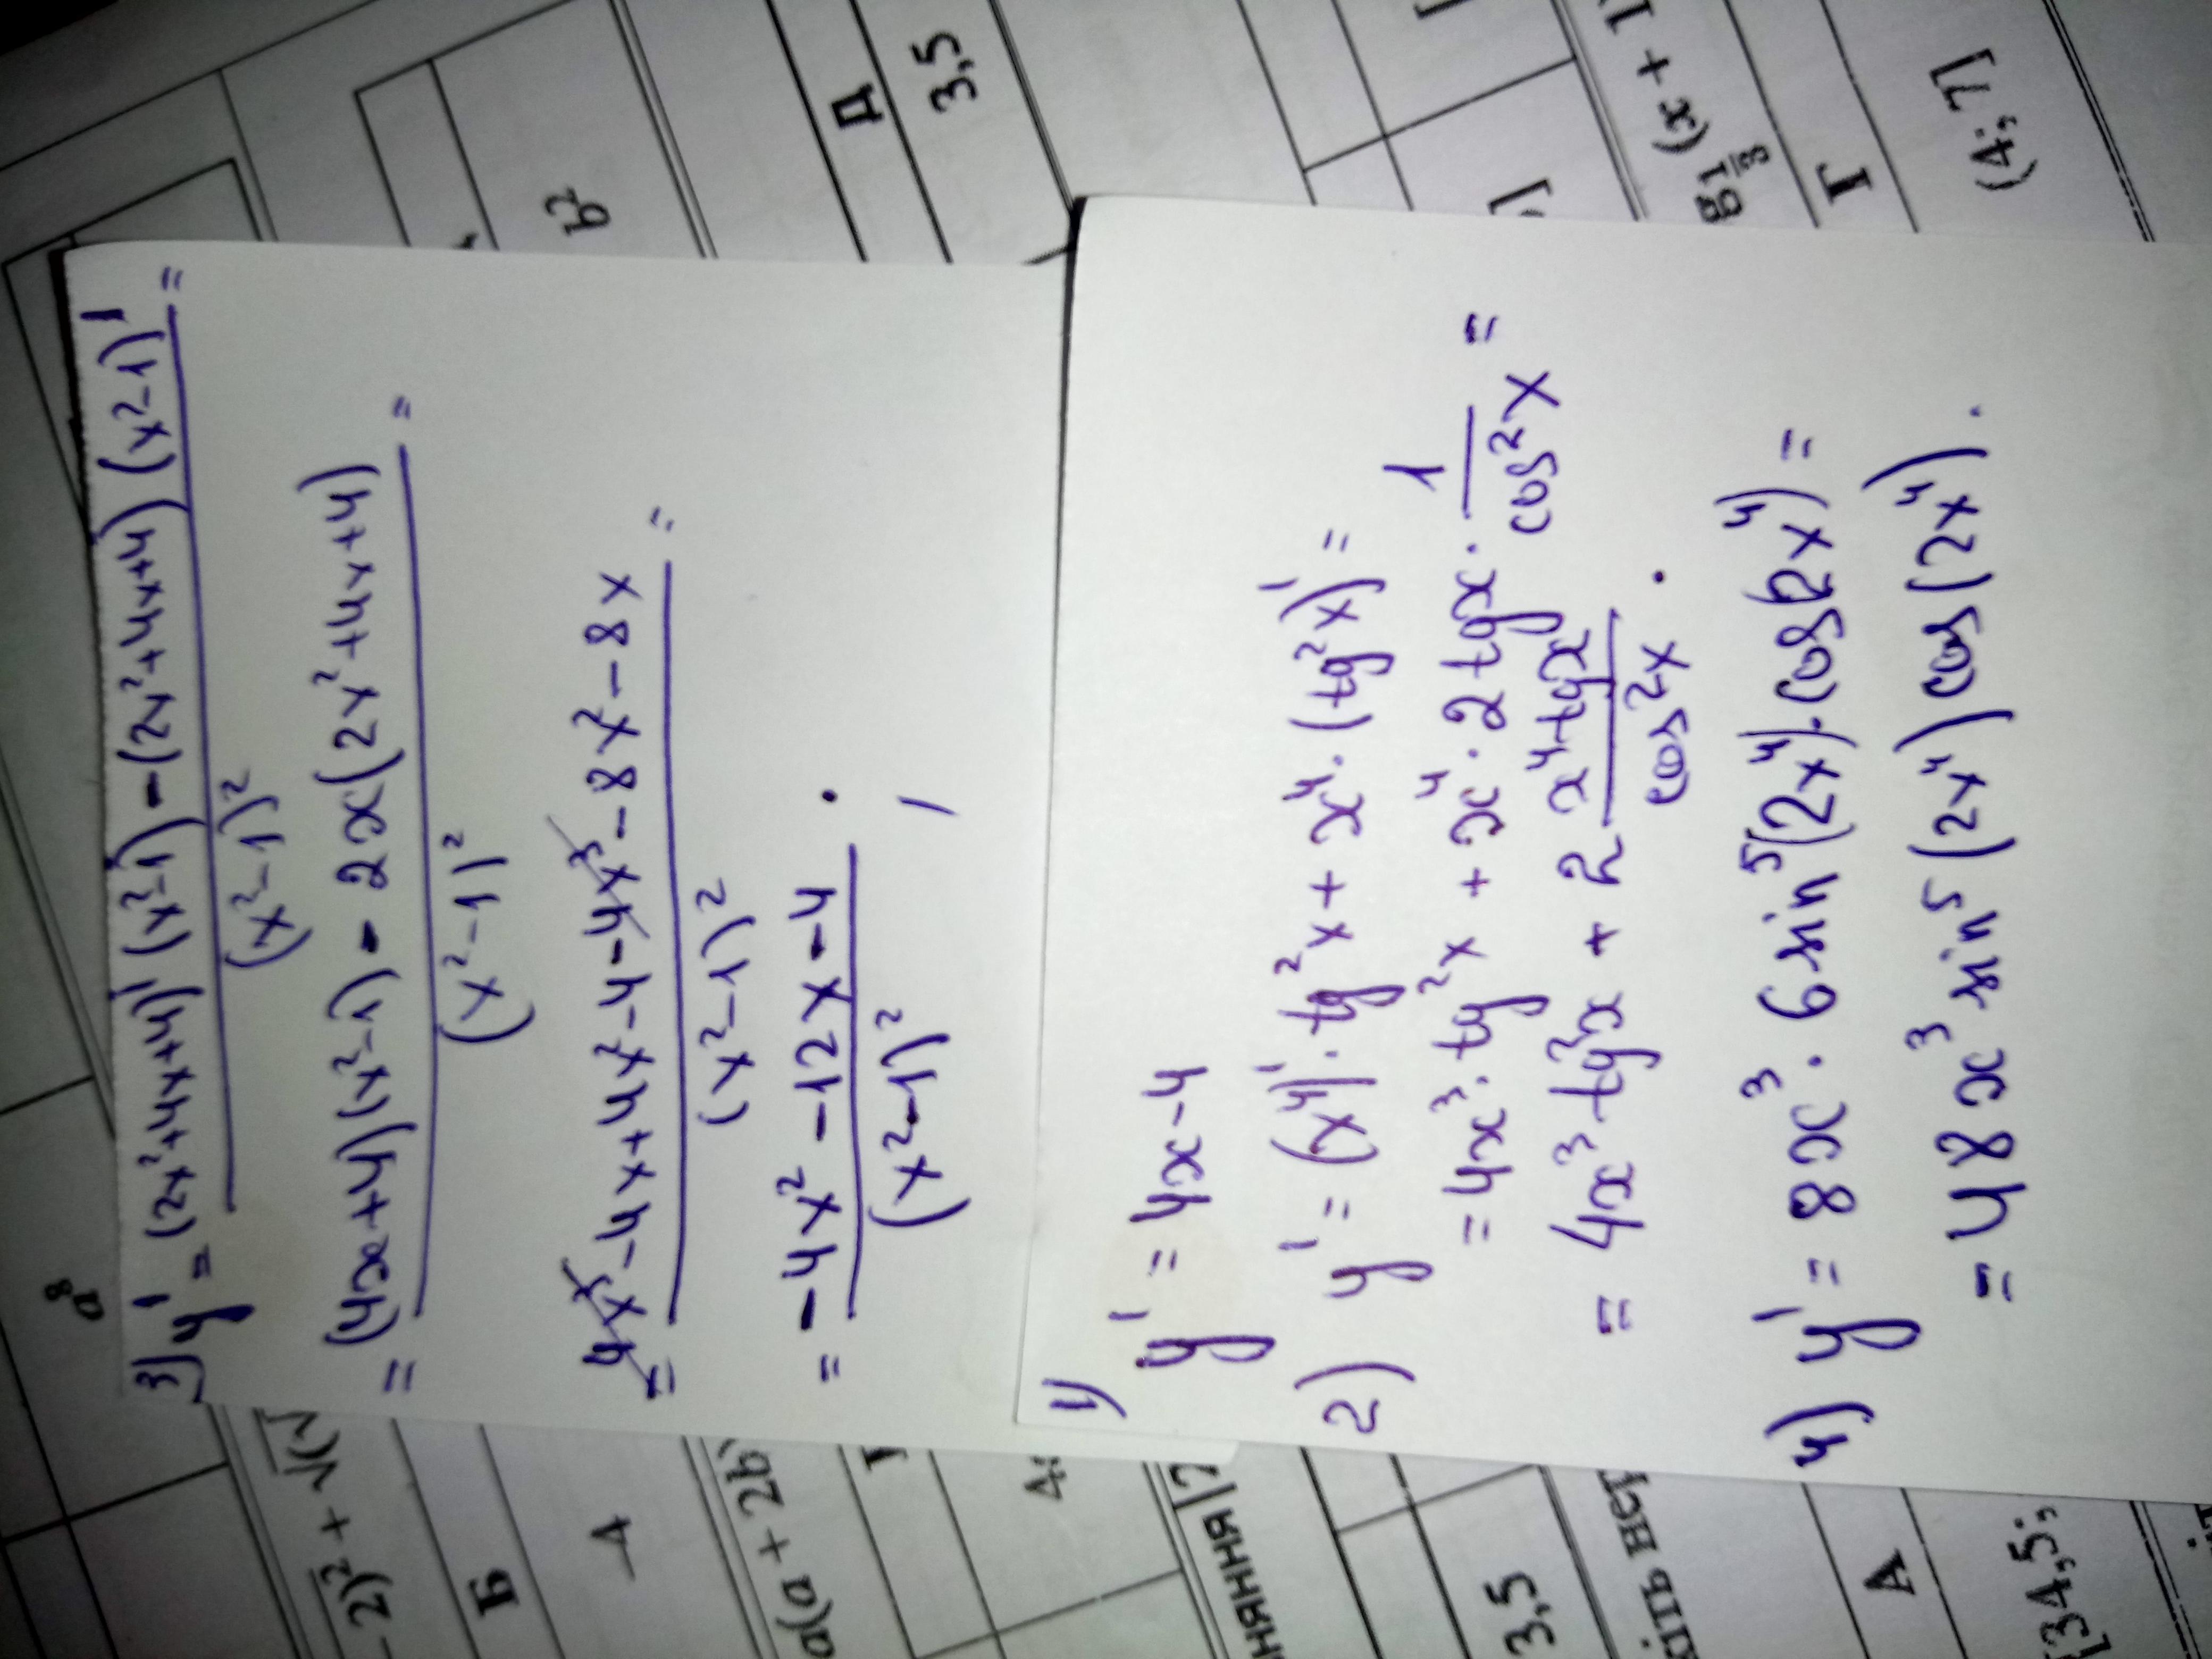 a⁸
b²
Д
3,5
3) y' = ((2x²+4x+4)' (x²-1) - (2x²+4x+4) (x²-1)')/(x²-1)² =
= ((4x+4)(x²-1) - 2x(2x²+4x+4))/(x²-1)² =
= (4x³-4x+4x²-4-4x³-8x²-8x)/(x²-1)² =
= (-4x²-12x-4)/(x²-1)² .
1) y' = 4x-4
2) y' = (x⁴)' · tg²x + x⁴ · (tg²x)' =
= 4x³ · tg²x + x⁴ · 2tgx · 1/cos²x =
= 4x³tg²x + 2 x⁴tgx/cos²x .
4) y' = 8x³ · 6 sin⁵(2x⁴) · cos(2x⁴) =
= 48x³ sin⁵(2x⁴) cos(2x⁴) .
2)² + √(
Б
-4
a(a + 2b
3,5
А
[34,5;
(x + 1
Г
(4; 7]